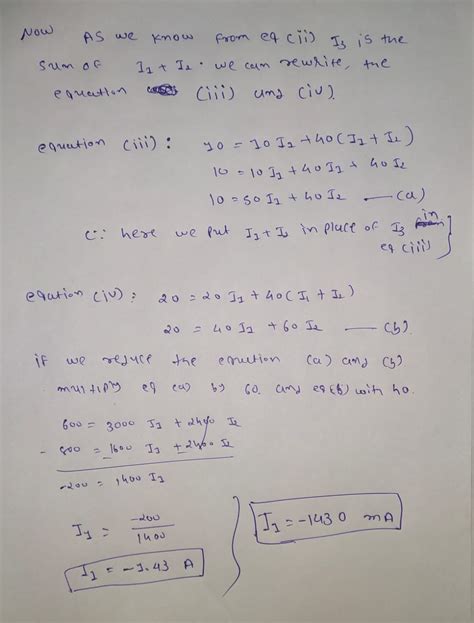 Now AS we know from eq (ii) I3 is the
sum of I1 + I2 . we can rewrite, the
equation (iii) and (iv).
equation (iii) : 10 = 10 I1 + 40 (I1 + I2)
10 = 10 I1 + 40 I1 + 40 I2
10 = 50 I1 + 40 I2 — (a)
(∵ here we put I1 + I2 in place of I3 in
eq (iii)}
eqation (iv) : 20 = 20 I2 + 40 (I1 + I2)
20 = 40 I1 + 60 I2 — (b).
if we reduce the equation (a) and (b)
multiply eq (a) by 60. and eq (b) with 40.
600 = 3000 I1 + 2400 I2
- 800 = 1600 I1 + 2400 I2
-200 = 1400 I1
I1 = -200 / 1400
I1 = -1.43 A
I1 = -1430 mA